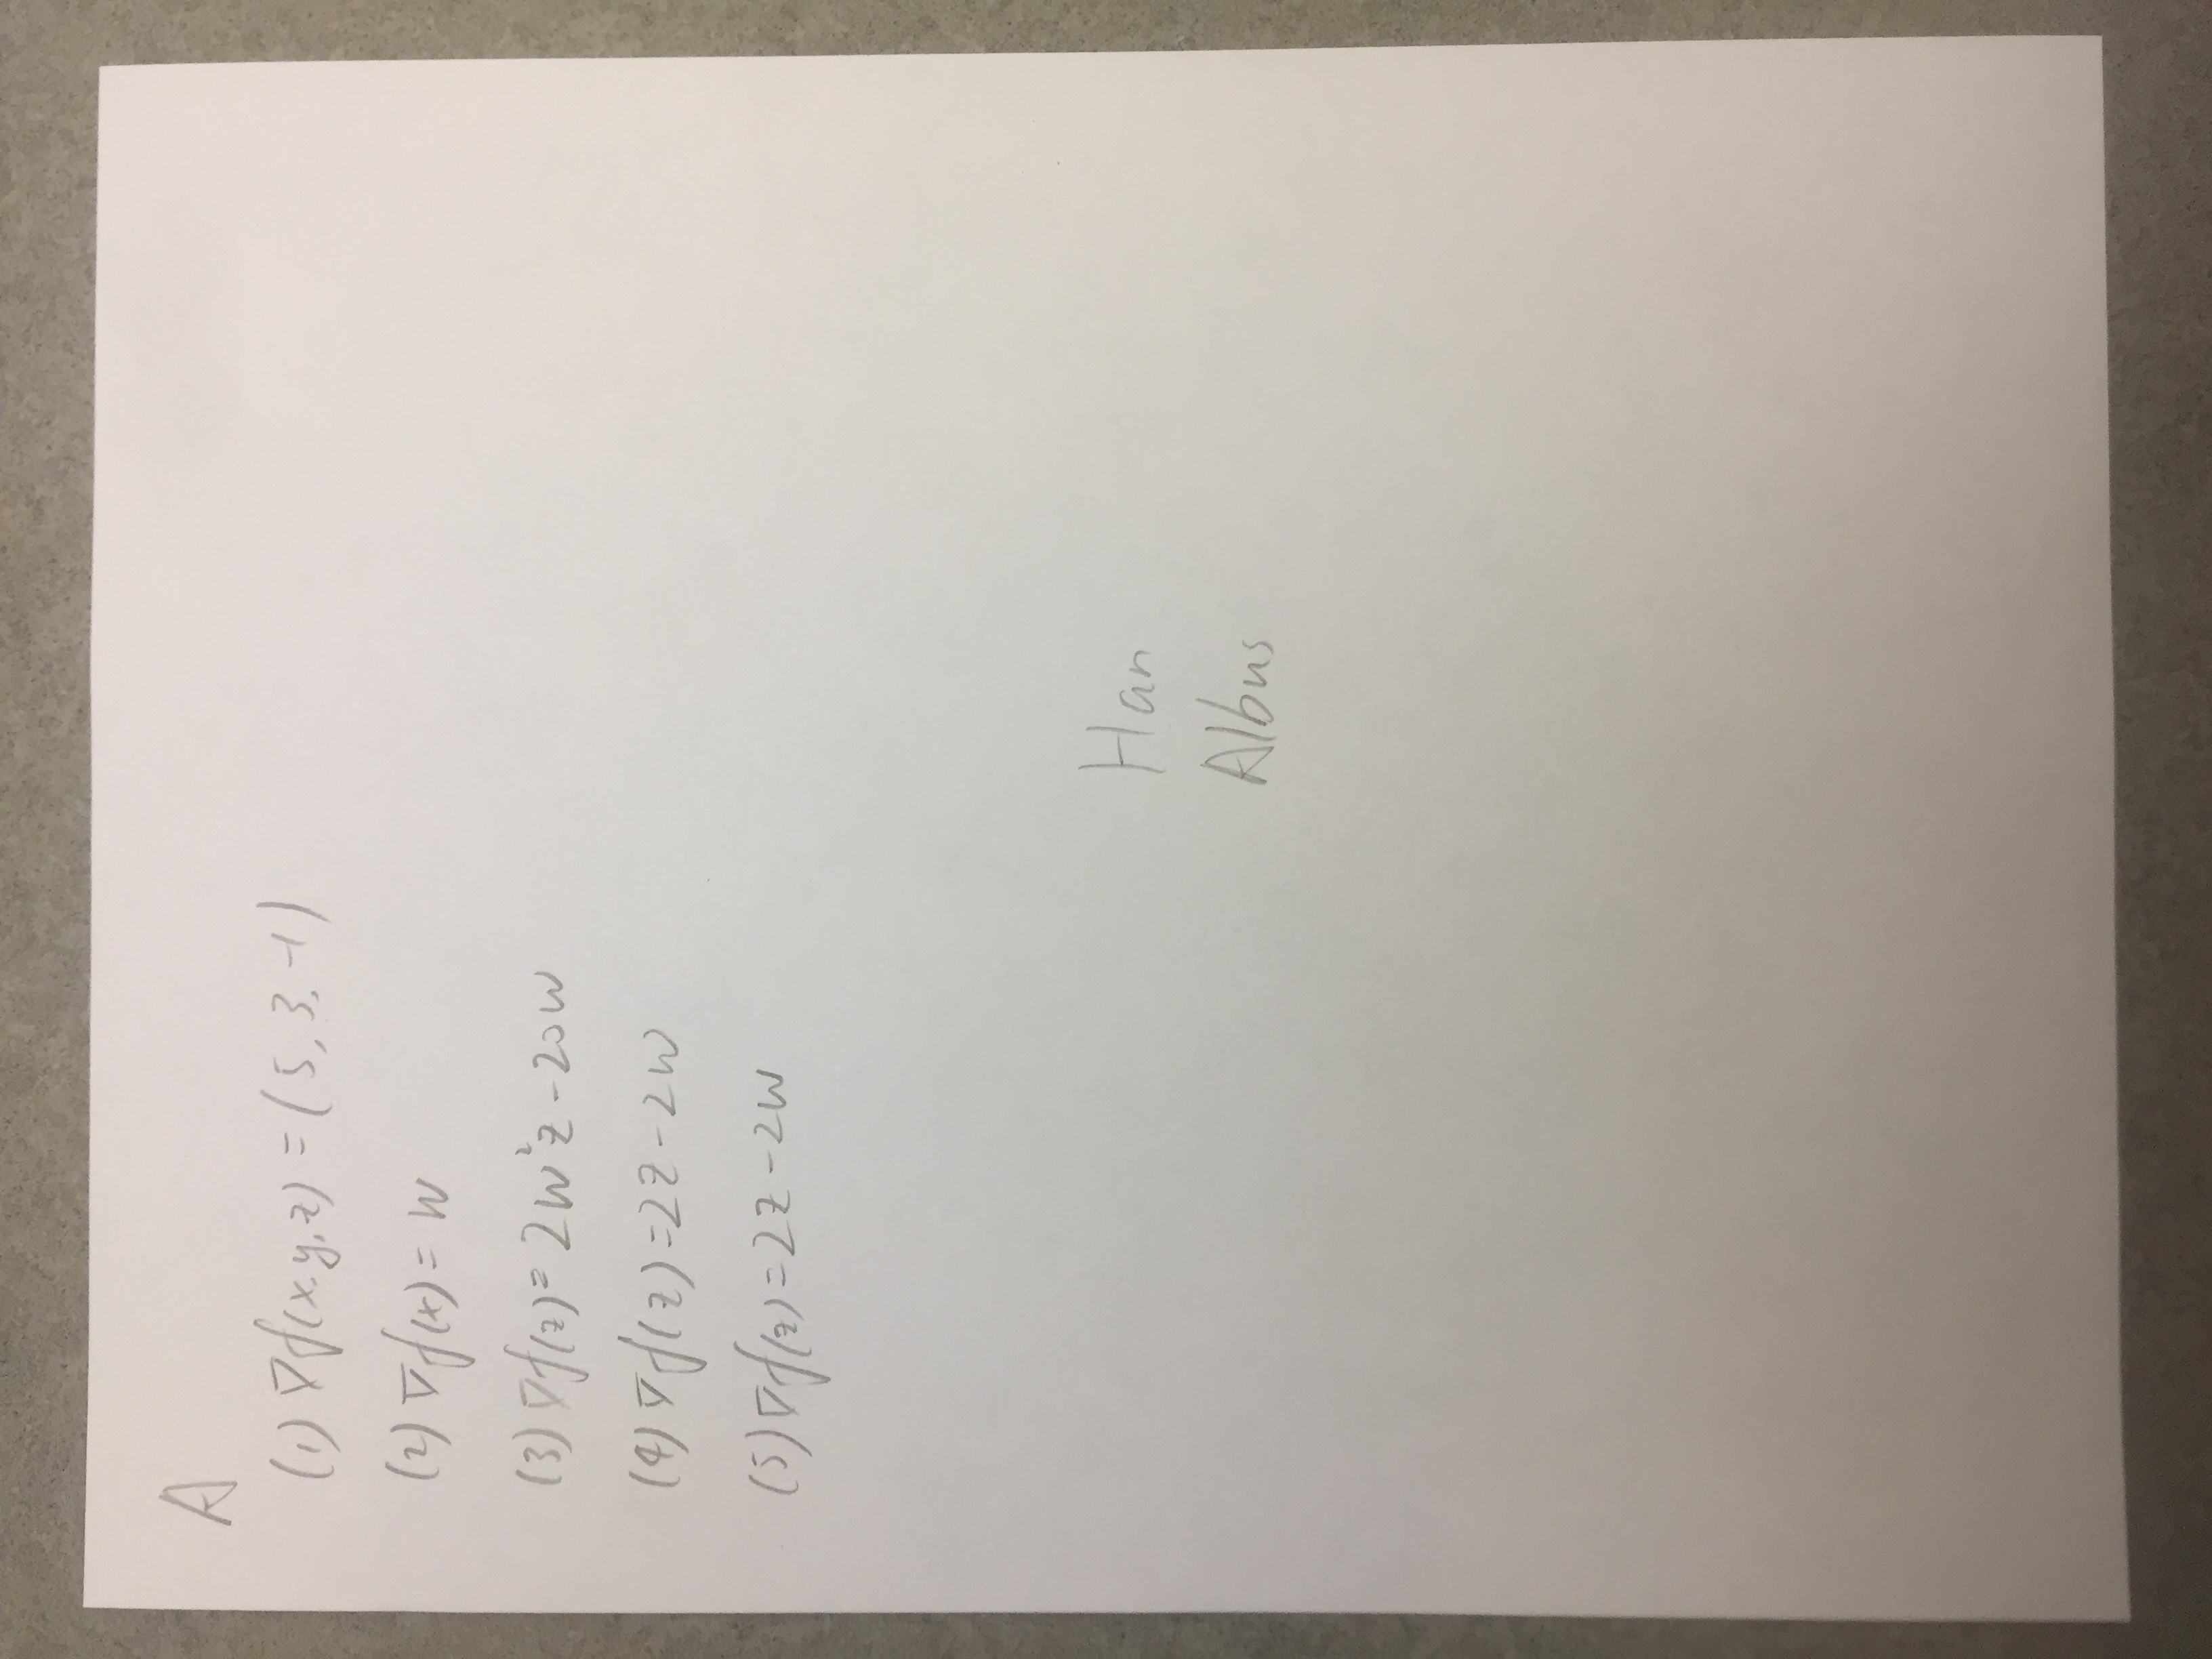 A
(1) ∇f(x,y,z) = (5, 3, -1)
(2) ∇f(x) = w
(3) ∇f(z) = 2w²z - 20w
(4) ∇f(z) = 2z - 2w
(5) ∇f(z) = 2z - 2w
Han
Albus